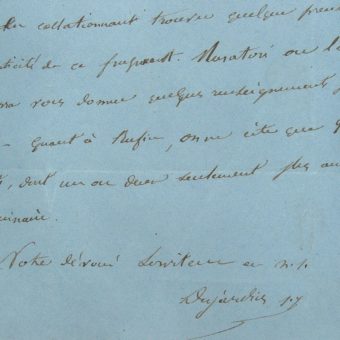 collationnant trouver quelque preuve
de ce fragment. Muratori ou l
vous donner quelques renseignements
- quant à Rufin, on ne cite que
, dont un ou deux seulement
Votre dévoué Serviteur en n.s.
Dujardin